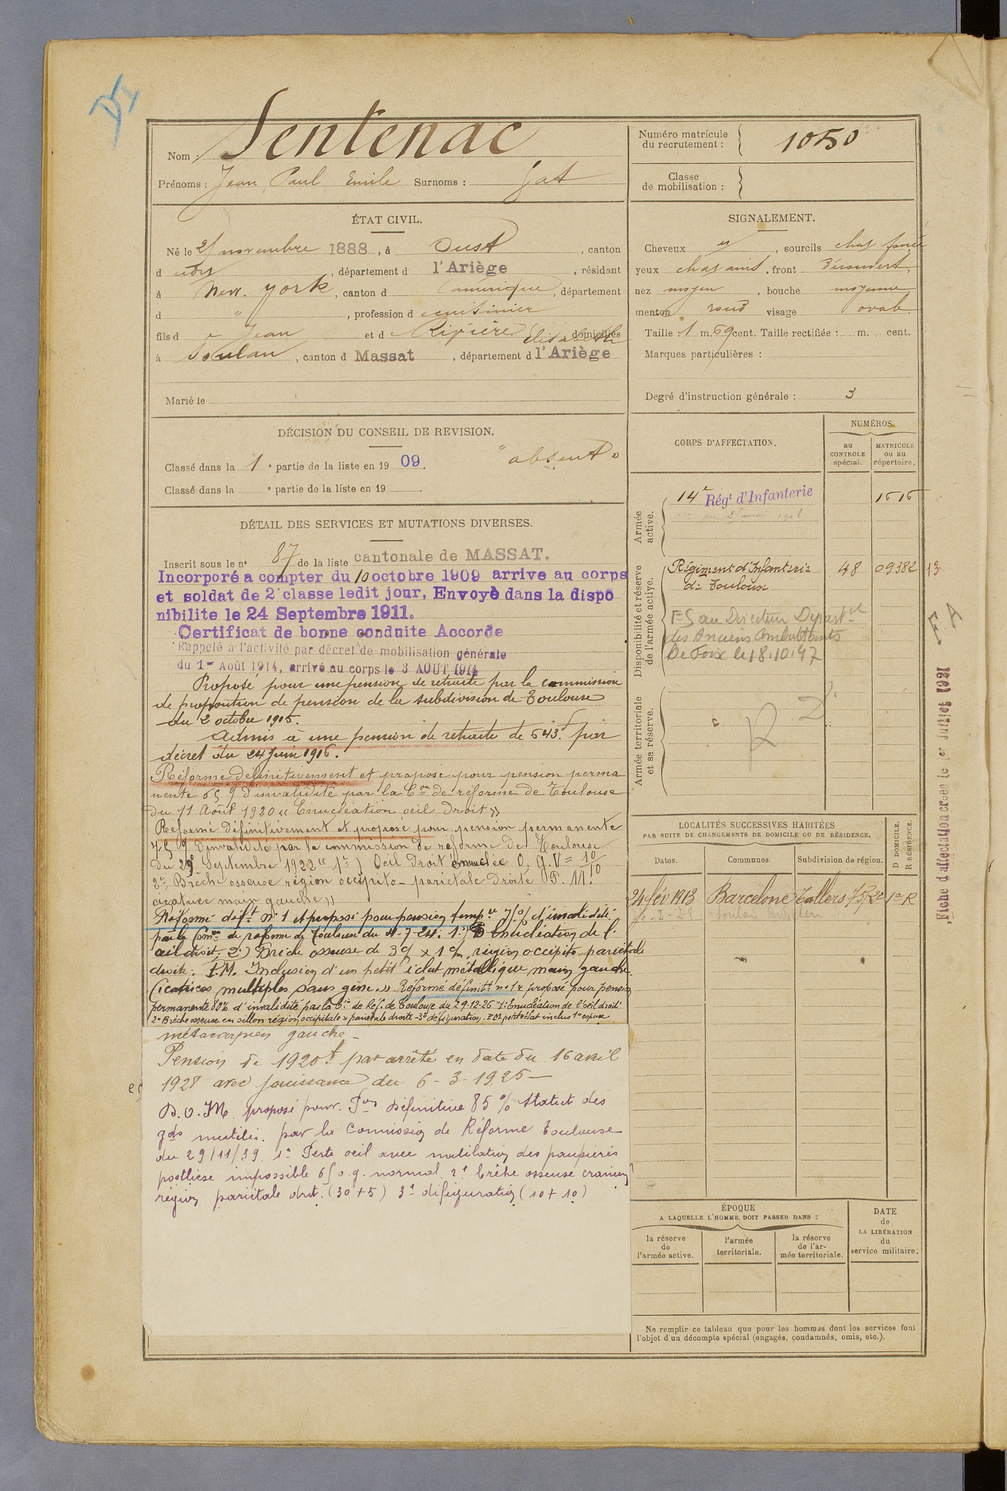 Nom : Sentenac
Prénoms : Jean Paul Emile Surnoms : Gat
Numéro matricule du recrutement : 1050
Classe de mobilisation :
ÉTAT CIVIL.
Né le 21 novembre 1888, à Oust, canton
d udt, département d l'Ariège, résidant
à New. York, canton d Amérique, département
d " , profession d cuisinier
fils d Jean et d Rivière Elisabeth domiciliés
à Soulan, canton d Massat, département d l'Ariège
Marié le
SIGNALEMENT.
Cheveux , sourcils chat foncé
yeux chat , front Découvert
nez moyen, bouche moyenne
menton rond visage ovale
Taille : 1 m. 69 cent. Taille rectifiée : m. cent.
Marques particulières :
Degré d'instruction générale : 3
DÉCISION DU CONSEIL DE REVISION.
Classé dans la 1e partie de la liste en 1909. "absent"
Classé dans la e partie de la liste en 19 .
DÉTAIL DES SERVICES ET MUTATIONS DIVERSES.
Inscrit sous le n° 87 de la liste cantonale de MASSAT.
Incorporé a compter du 10 octobre 1909 arrive au corps
et soldat de 2e classe ledit jour, Envoyé dans la dispo
nibilite le 24 Septembre 1911.
Certificat de bonne conduite Accorde
Rappelé à l'activité par décret de mobilisation générale
du 1er Août 1914, arrivé au corps le 3 AOUT 1914
Proposé pour une pension de retraite par la commission
de proposition de pension de la subdivision de Toulouse
du 2 octobre 1915.
Admis à une pension de retraite de 643f par
décret du 24 Juin 1916.
Réformé définitivement et proposé pour pension perma
nente 65 % d'invalidité par la Con de réforme de Toulouse
du 11 Août 1920 "Enucléation œil Droit"
Réformé définitivement et proposé pour pension permanente
75 % d'invalidité par la commission de réforme de Toulouse
du 29 Septembre 1922 "1°) Oeil Droit énucléé O. g. V = 10/10
2° Brèche osseuse région occipito-pariétale droite P. M.
cicatrice main gauche"
Réformé déft n° 1 et proposé pour pension tempre 70% d'invalidité
par la Comon de réforme de Toulouse du 11-7-24. 1°) Enucléation de l'
œil droit. 2°) Brèche osseuse de 3 % x 1 %, région occipito pariétale
droite. P.M. Inclusion d'un petit éclat métallique main gauche
Cicatrices multiples sans gêne. Réformé définitt n° 1 et proposé pour pension
permanente 80% d'invalidité par la Con de Réf. de Toulouse du 29.12.26 1° Enucléation de l'œil droit
2° Brèche osseuse en sillon région occipitale & pariétale droite - 3° défiguration.
métacarpien gauche.
Pension de 1920f par arrêté en date du 16 avril
1928 avec jouissance du 6-3-1925 -
D.O.M. proposé pour Pon Définitive 85 % Statut des
gds mutilés. par la Commission de Réforme Toulouse
du 29/11/39 1° Perte œil avec mutilation des paupières
prothèse impossible 65 o.g. normal 2° brèche osseuse cranienne
région pariétale droit. (30 + 5) 3° défiguration (10 + 10)
CORPS D'AFFECTATION.
NUMÉROS.
au CONTROLE spécial.
MATRICULE ou au répertoire.
Armée active.
14e Régt d'Infanterie 1515
Disponibilité et réserve de l'armée active.
Régiment d'Infanterie de Toulouse 48 09382 13
FS au Directeur Départal
des Anciens Combattants
De Foix le 18.10.47
Armée territoriale et sa réserve.
R
Z
FA
Fiche d'affectation créée le 1er Juillet 1921
LOCALITÉS SUCCESSIVES HABITÉES
PAR SUITE DE CHANGEMENTS DE DOMICILE OU DE RÉSIDENCE.
Dates.
Communes
Subdivision de région.
D DOMICILE.
R RÉSIDENCE.
24 fév 1913 Barcelone Tallers 75 R
ÉPOQUE
A LAQUELLE L'HOMME DOIT PASSER DANS :
la réserve de l'armée active.
l'armée territoriale.
la réserve de l'armée territoriale.
DATE de LA LIBÉRATION du service militaire.
Ne remplir ce tableau que pour les hommes dont les services font
l'objet d'un décompte spécial (engagés, condamnés, omis, etc.).